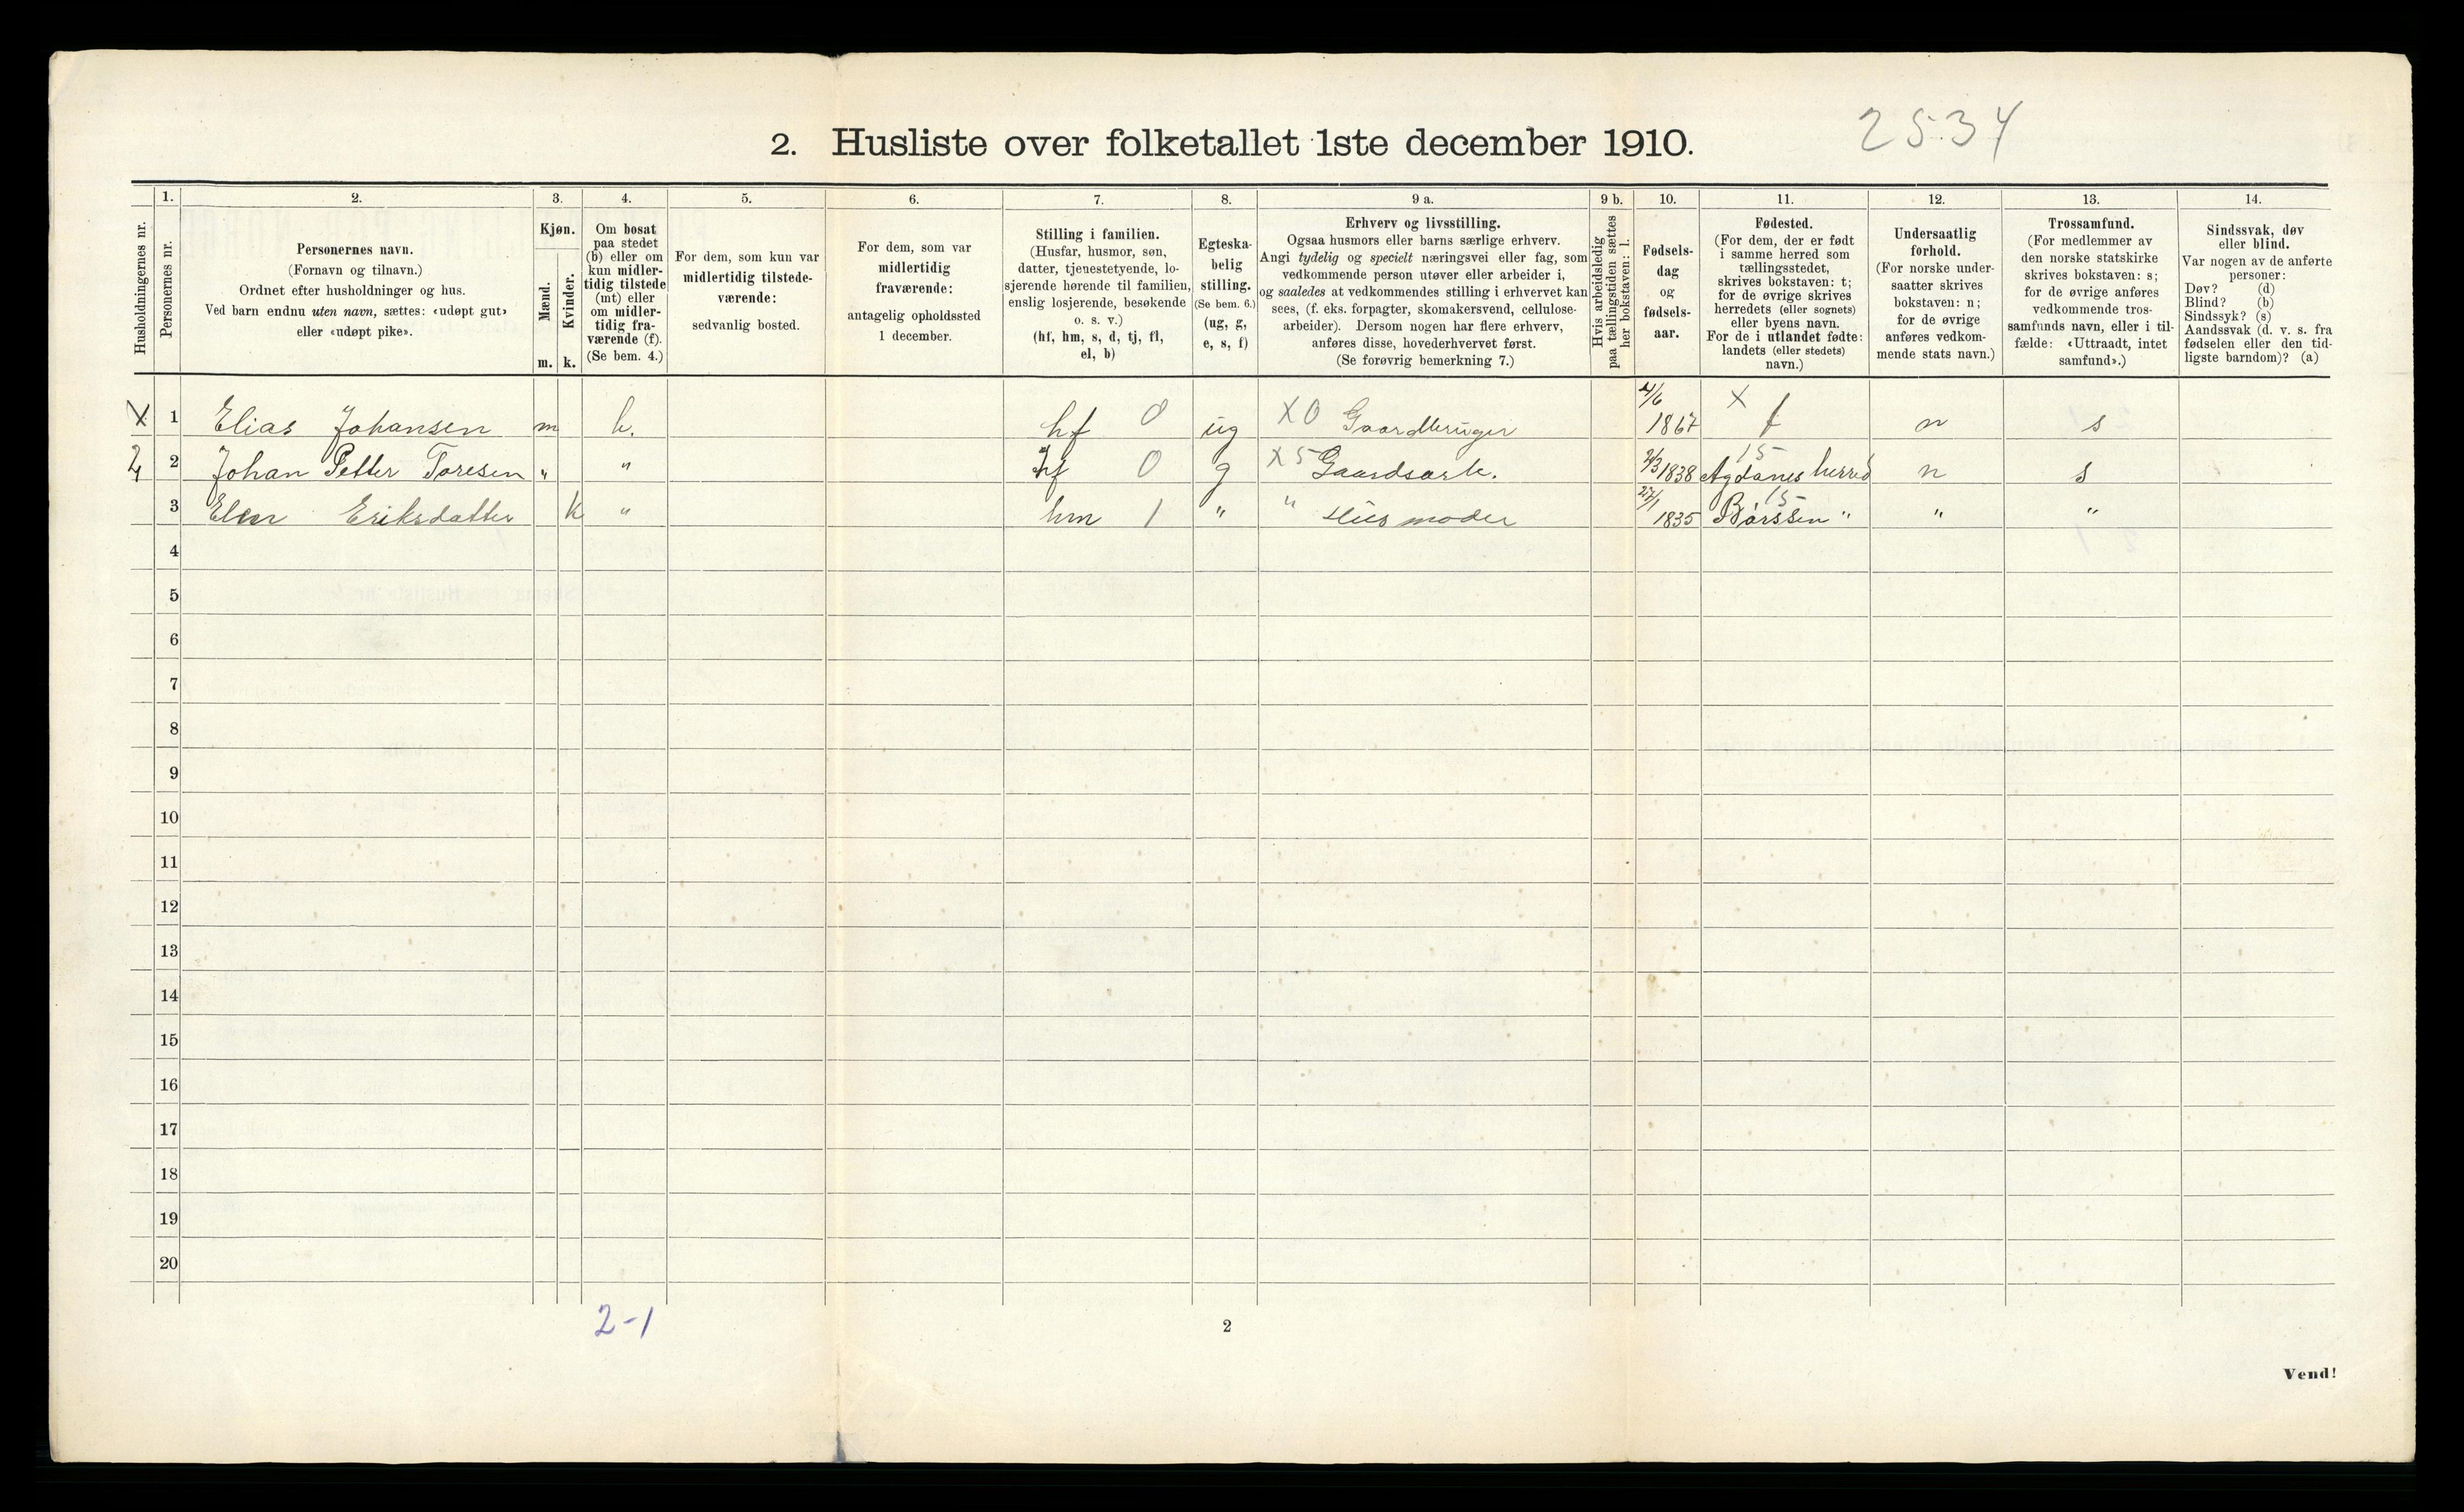 2. Husliste over folketallet 1ste december 1910.
2534
1. 2. 3. 4. 5. 6. 7. 8. 9 a. 9 b. 10. 11. 12. 13. 14.
Husholdningernes nr.
Personernes nr.
Personernes navn.
(Fornavn og tilnavn.)
Ordnet efter husholdninger og hus.
Ved barn endnu uten navn, sættes: «udøpt gut»
eller «udøpt pike».
Kjøn.
Mænd.
Kvinder.
m. k.
Om bosat
paa stedet
(b) eller om
kun midler-
tidig tilstede
(mt) eller
om midler-
tidig fra-
værende (f).
(Se bem. 4.)
For dem, som kun var
midlertidig tilstede-
værende:
sedvanlig bosted.
For dem, som var
midlertidig
fraværende:
antagelig opholdssted
1 december.
Stilling i familien.
(Husfar, husmor, søn,
datter, tjenestetyende, lo-
sjerende hørende til familien,
enslig losjerende, besøkende
o. s. v.)
(hf, hm, s, d, tj, fl,
el, b)
Egteska-
belig
stilling.
(Se bem. 6.)
(ug, g,
e, s, f)
Erhverv og livsstilling.
Ogsaa husmors eller barns særlige erhverv.
Angi tydelig og specielt næringsvei eller fag, som
vedkommende person utøver eller arbeider i,
og saaledes at vedkommendes stilling i erhvervet kan
sees, (f. eks. forpagter, skomakersvend, cellulose-
arbeider). Dersom nogen har flere erhverv,
anføres disse, hovederhvervet først.
(Se forøvrig bemerkning 7.)
Hvis arbeidsledig
paa tællingstiden sættes
her bokstaven: l.
Fødsels-
dag
og
fødsels-
aar.
Fødested.
(For dem, der er født
i samme herred som
tællingsstedet,
skrives bokstaven: t;
for de øvrige skrives
herredets (eller sognets)
eller byens navn.
For de i utlandet fødte:
landets (eller stedets)
navn.)
Undersaatlig
forhold.
(For norske under-
saatter skrives
bokstaven: n;
for de øvrige
anføres vedkom-
mende stats navn.)
Trossamfund.
(For medlemmer av
den norske statskirke
skrives bokstaven: s;
for de øvrige anføres
vedkommende tros-
samfunds navn, eller i til-
fælde: «Uttraadt, intet
samfund».)
Sindssvak, døv
eller blind.
Var nogen av de anførte
personer:
Døv? (d)
Blind? (b)
Sindssyk? (s)
Aandssvak (d. v. s. fra
fødselen eller den tid-
ligste barndom)? (a)
X 1 Elias Johansen m b. hf 0 ug X0 Gaardbruger 4/6 1867 X t n s
2 2 Johan Petter Toresen " " hf 0 g X5 Gaardsarb. 2/3 1838 15 Agdanes herred n s
3 Elen Eriksdatter k " hm 1 " " Husmoder 27/1 1835 15 Børssen " " "
4
5
6
7
8
9
10
11
12
13
14
15
16
17
18
19
20
2-1
2
Vend!